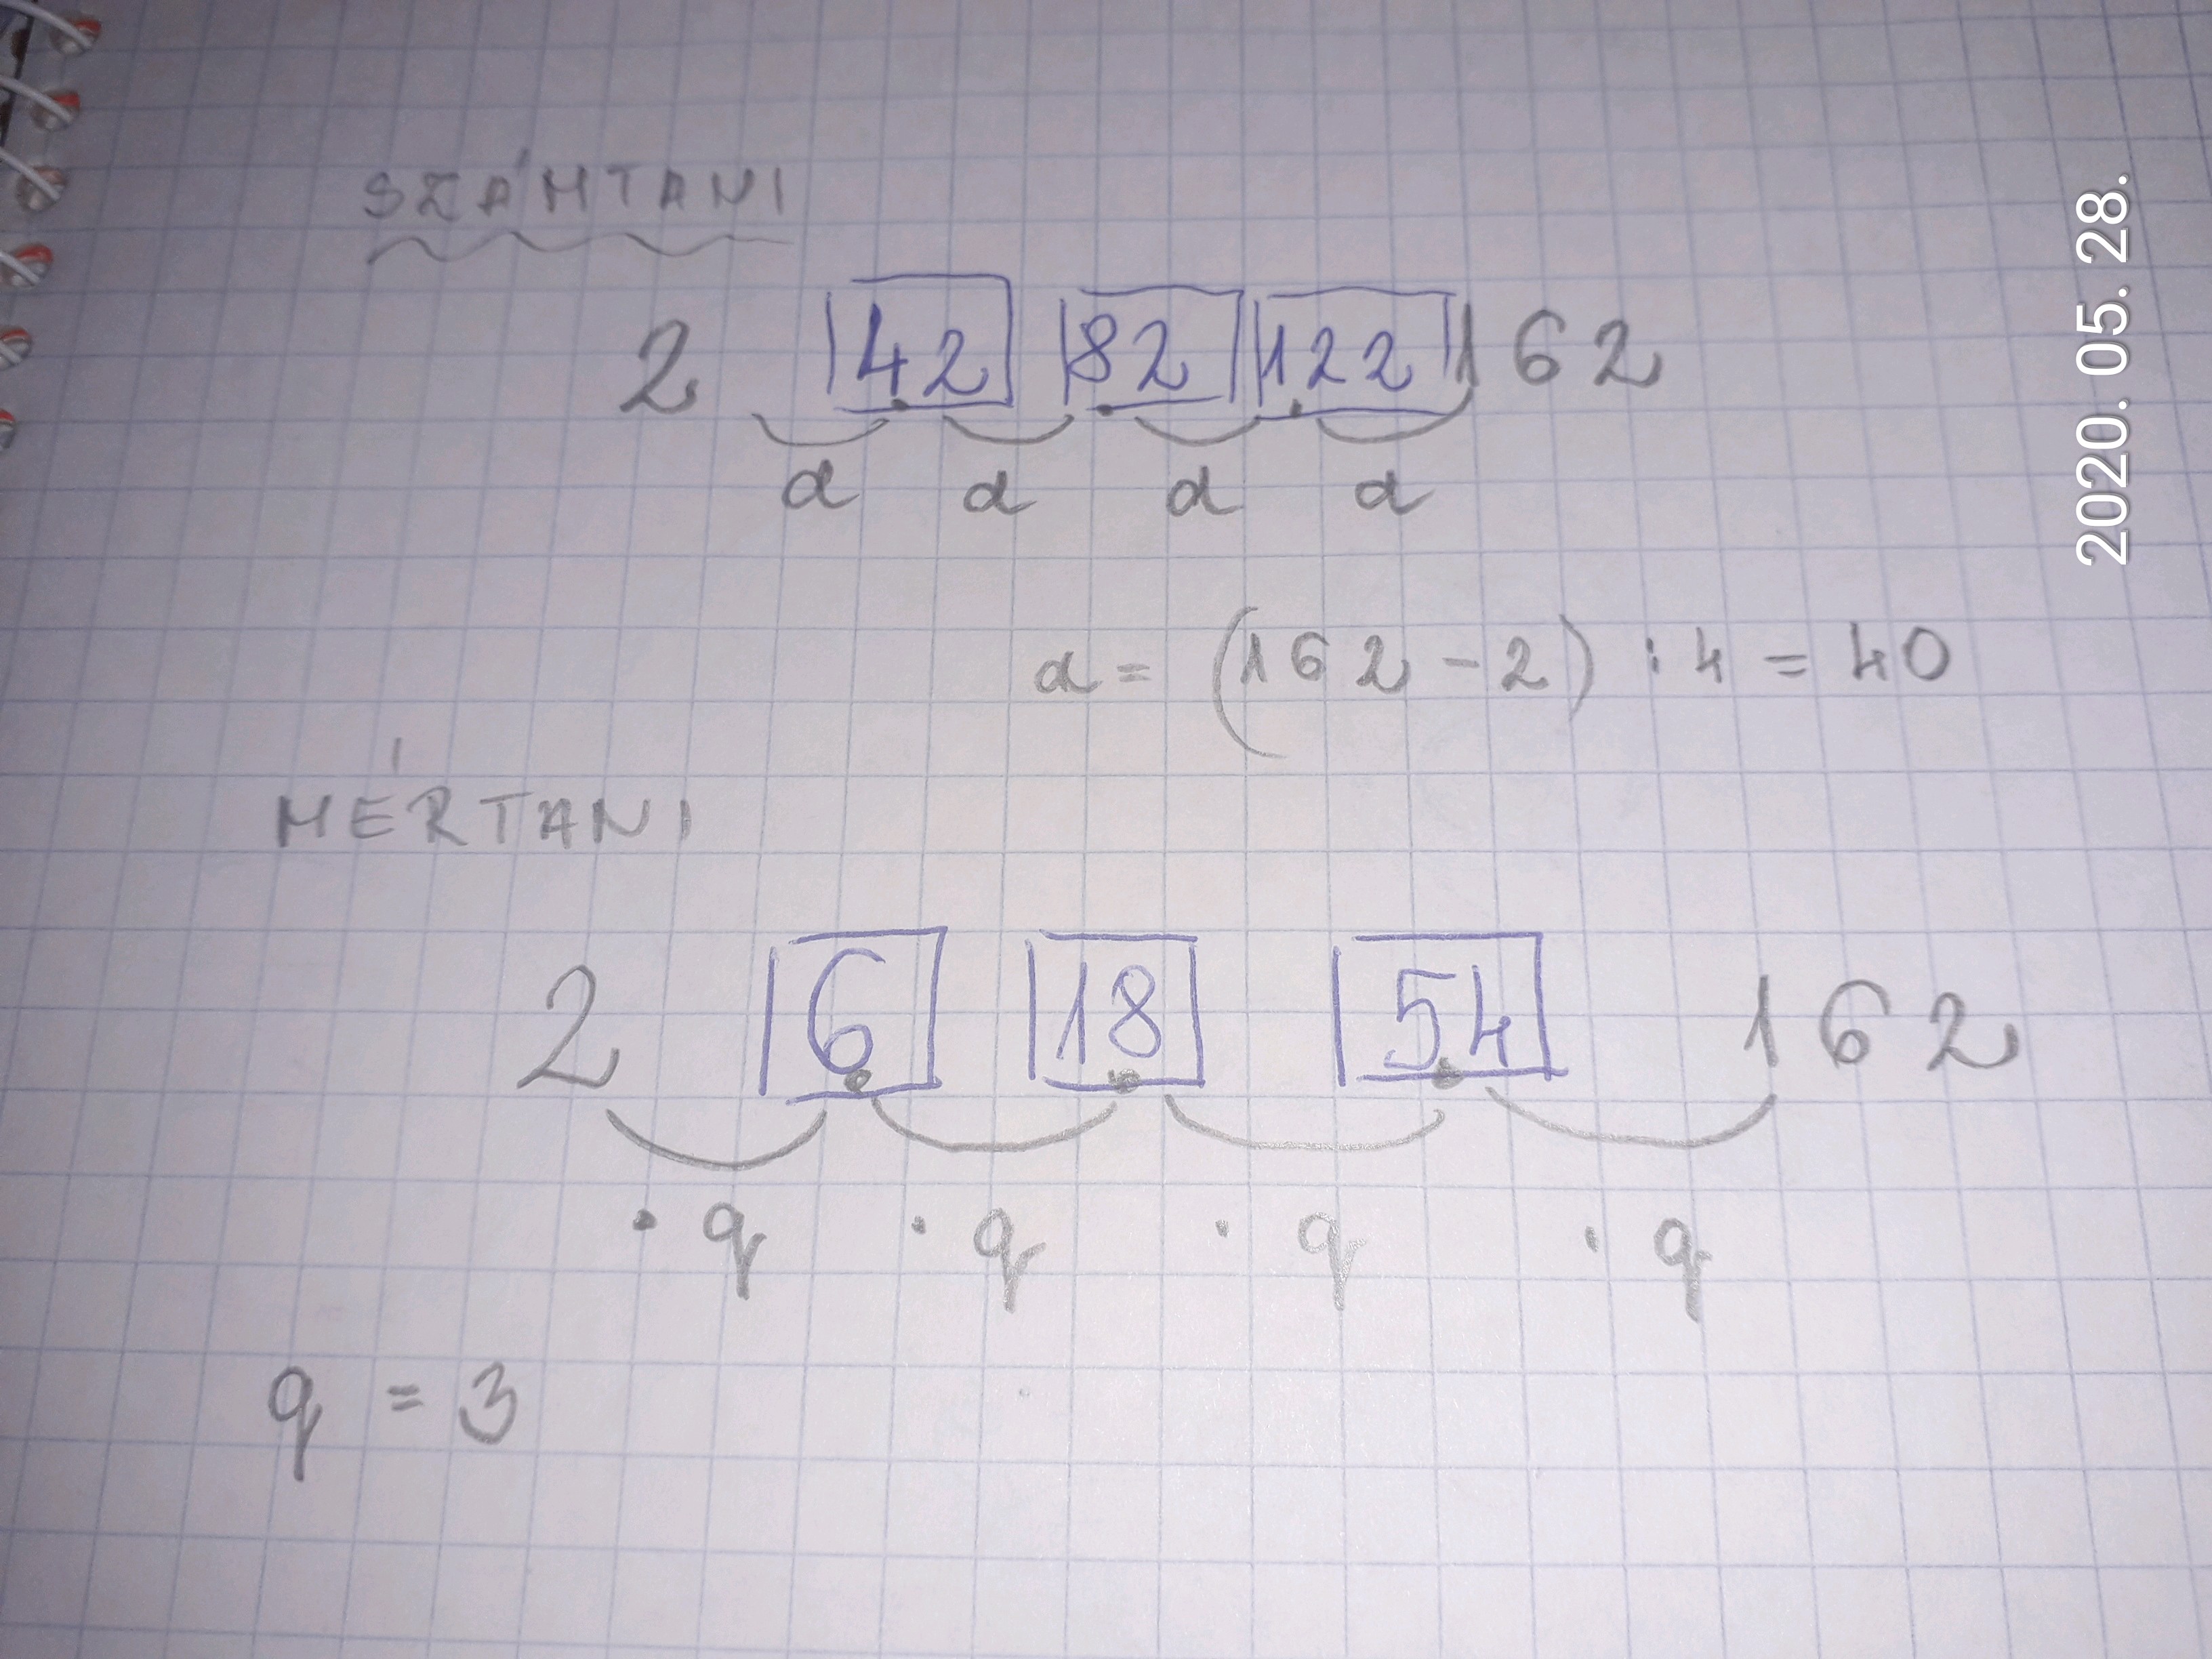 SZÁMTANI
2 42 82 122 162
d d d d
d = (162 - 2) : 4 = 40
MÉRTANI
2 6 18 54 162
· q · q · q · q
q = 3
2020. 05. 28.